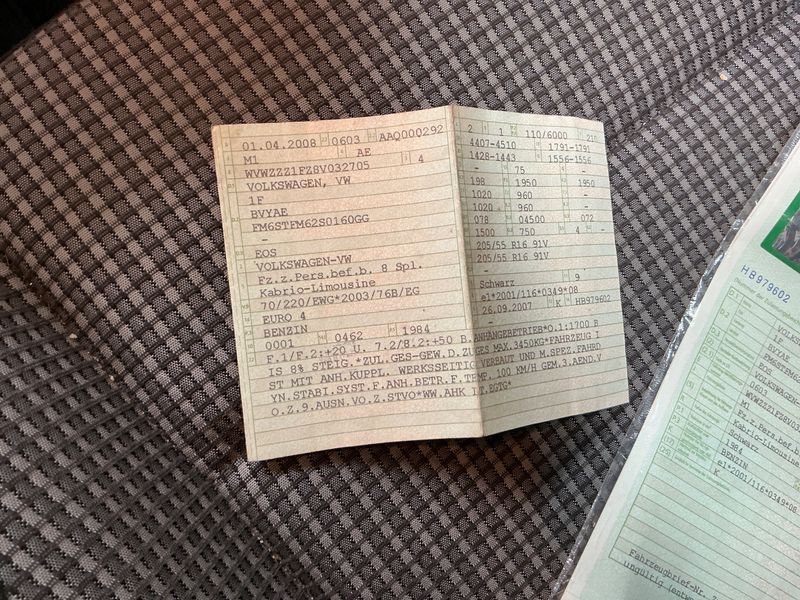 01.04.2008 0603 AAQ000292
M1 AE
WVWZZZ1FZ8V032705 4
VOLKSWAGEN, VW
1F
BVYAE
FM6STFM62S0160GG
-
EOS
VOLKSWAGEN-VW
Fz.z.Pers.bef.b. 8 Spl.
Kabrio-Limousine
70/220/EWG*2003/76B/EG
EURO 4
BENZIN
0001 0462 1984
2 1 110/6000 210
4407-4510 1791-1791
1428-1443 1556-1556
- 75 -
198 1950 1950
1020 960 -
1020 960 -
078 04500 072
1500 750 4 -
205/55 R16 91V
205/55 R16 91V
-
Schwarz 9
e1*2001/116*0349*08
26.09.2007 K HB979602
F.1/F.2:+20 U. 7.2/8.2:+50 B.ANHANGEBETRIEB*O.1:1700 B
IS 8% STEIG.*ZUL.GES-GEW.D.ZUGES MAX.3450KG*FAHRZEUG I
ST MIT ANH.KUPPL. WERKSSEITIG VERBAUT UND M.SPEZ.FAHRD
YN.STABI.SYST.F.ANH.BETR.F.TEMP. 100 KM/H GEM.3.AEND.V
O.Z.9.AUSN.VO.Z.STVO*WW.AHK LT.EGTG*
HB979602
VOLKSWAGEN
1F
BVYAE
FM6STFM6
EOS
VOLKSWAGEN
0603
WVWZZZ1FZ8V03
M1
Fz.z.Pers.bef.b
Kabrio-Limousine
Schwarz
1984
BENZIN
e1*2001/116*0349*08
K
Fahrzeugbrief-Nr.
ungültig